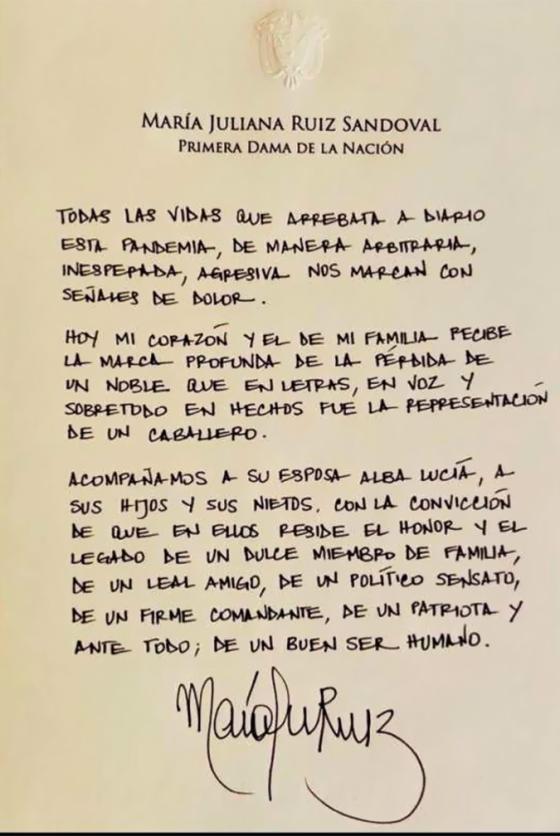 MARÍA JULIANA RUIZ SANDOVAL
PRIMERA DAMA DE LA NACIÓN
TODAS LAS VIDAS QUE ARREBATA A DIARIO
ESTA PANDEMIA, DE MANERA ARBITRARIA,
INESPERADA, AGRESIVA NOS MARCAN CON
SEÑALES DE DOLOR.
HOY MI CORAZÓN Y EL DE MI FAMILIA RECIBE
LA MARCA PROFUNDA DE LA PÉRDIDA DE
UN NOBLE QUE EN LETRAS, EN VOZ Y
SOBRETODO EN HECHOS FUE LA REPRESENTACIÓN
DE UN CABALLERO.
ACOMPAÑAMOS A SU ESPOSA ALBA LUCÍA, A
SUS HIJOS Y SUS NIETOS, CON LA CONVICCIÓN
DE QUE EN ELLOS RESIDE EL HONOR Y EL
LEGADO DE UN DULCE MIEMBRO DE FAMILIA,
DE UN LEAL AMIGO, DE UN POLÍTICO SENSATO,
DE UN FIRME COMANDANTE, DE UN PATRIOTA Y
ANTE TODO; DE UN BUEN SER HUMANO.
MaríaJuRuiz